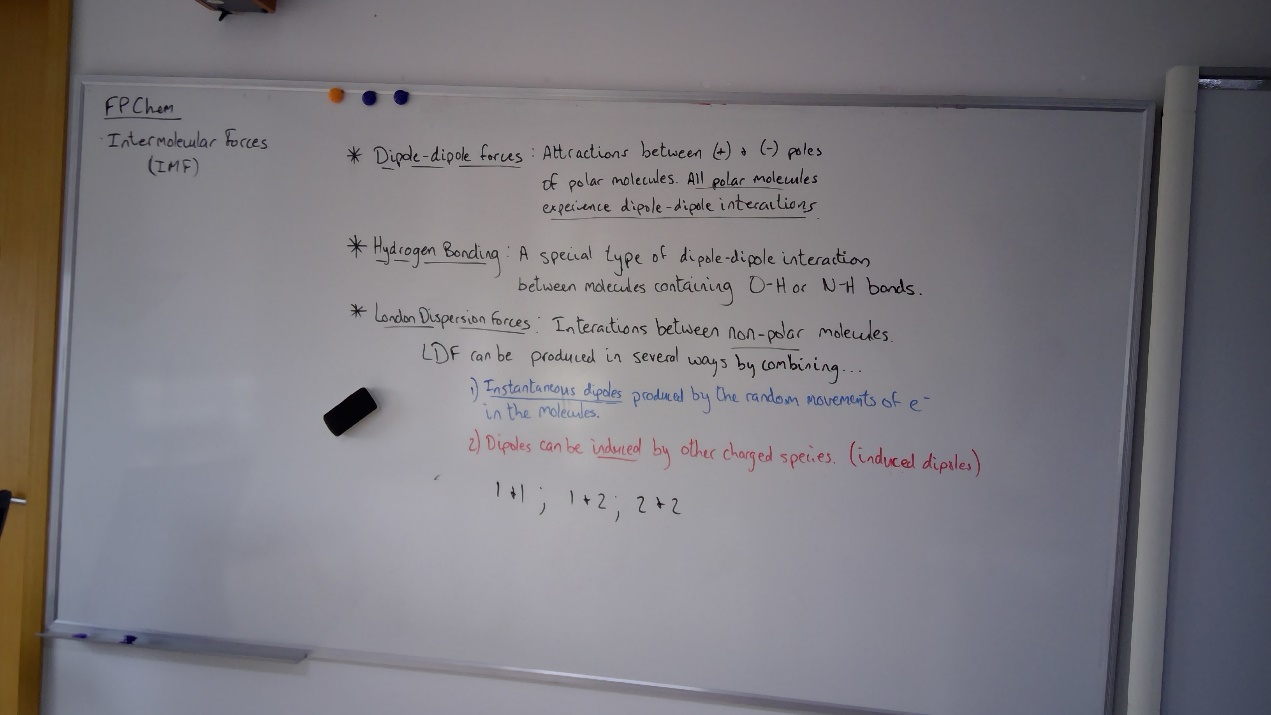 FP Chem
· Intermolecular Forces
(IMF)
* Dipole-dipole forces : Attractions between (+) & (-) poles
of polar molecules. All polar molecules
experience dipole-dipole interactions
* Hydrogen Bonding : A special type of dipole-dipole interaction
between molecules containing O-H or N-H bonds.
* London Dispersion Forces : Interactions between non-polar molecules.
LDF can be produced in several ways by combining...
1) Instantaneous dipoles produced by the random movements of e⁻
in the molecules.
2) Dipoles can be induced by other charged species. (induced dipoles)
1+1 ; 1+2 ; 2+2